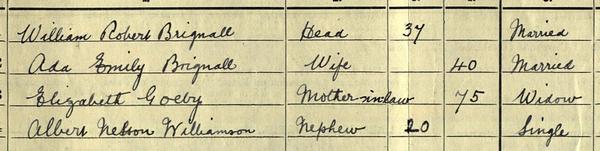 William Robert Brignall Head 37 Married
Ada Emily Brignall Wife 40 Married
Elizabeth Goeby Mother-in-law 75 Widow
Albert Nelson Williamson Nephew 20 Single